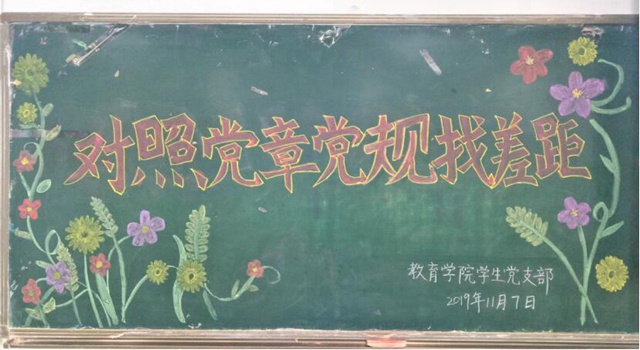 对照党章党规找差距
教育学院学生党支部
2019年11月7日